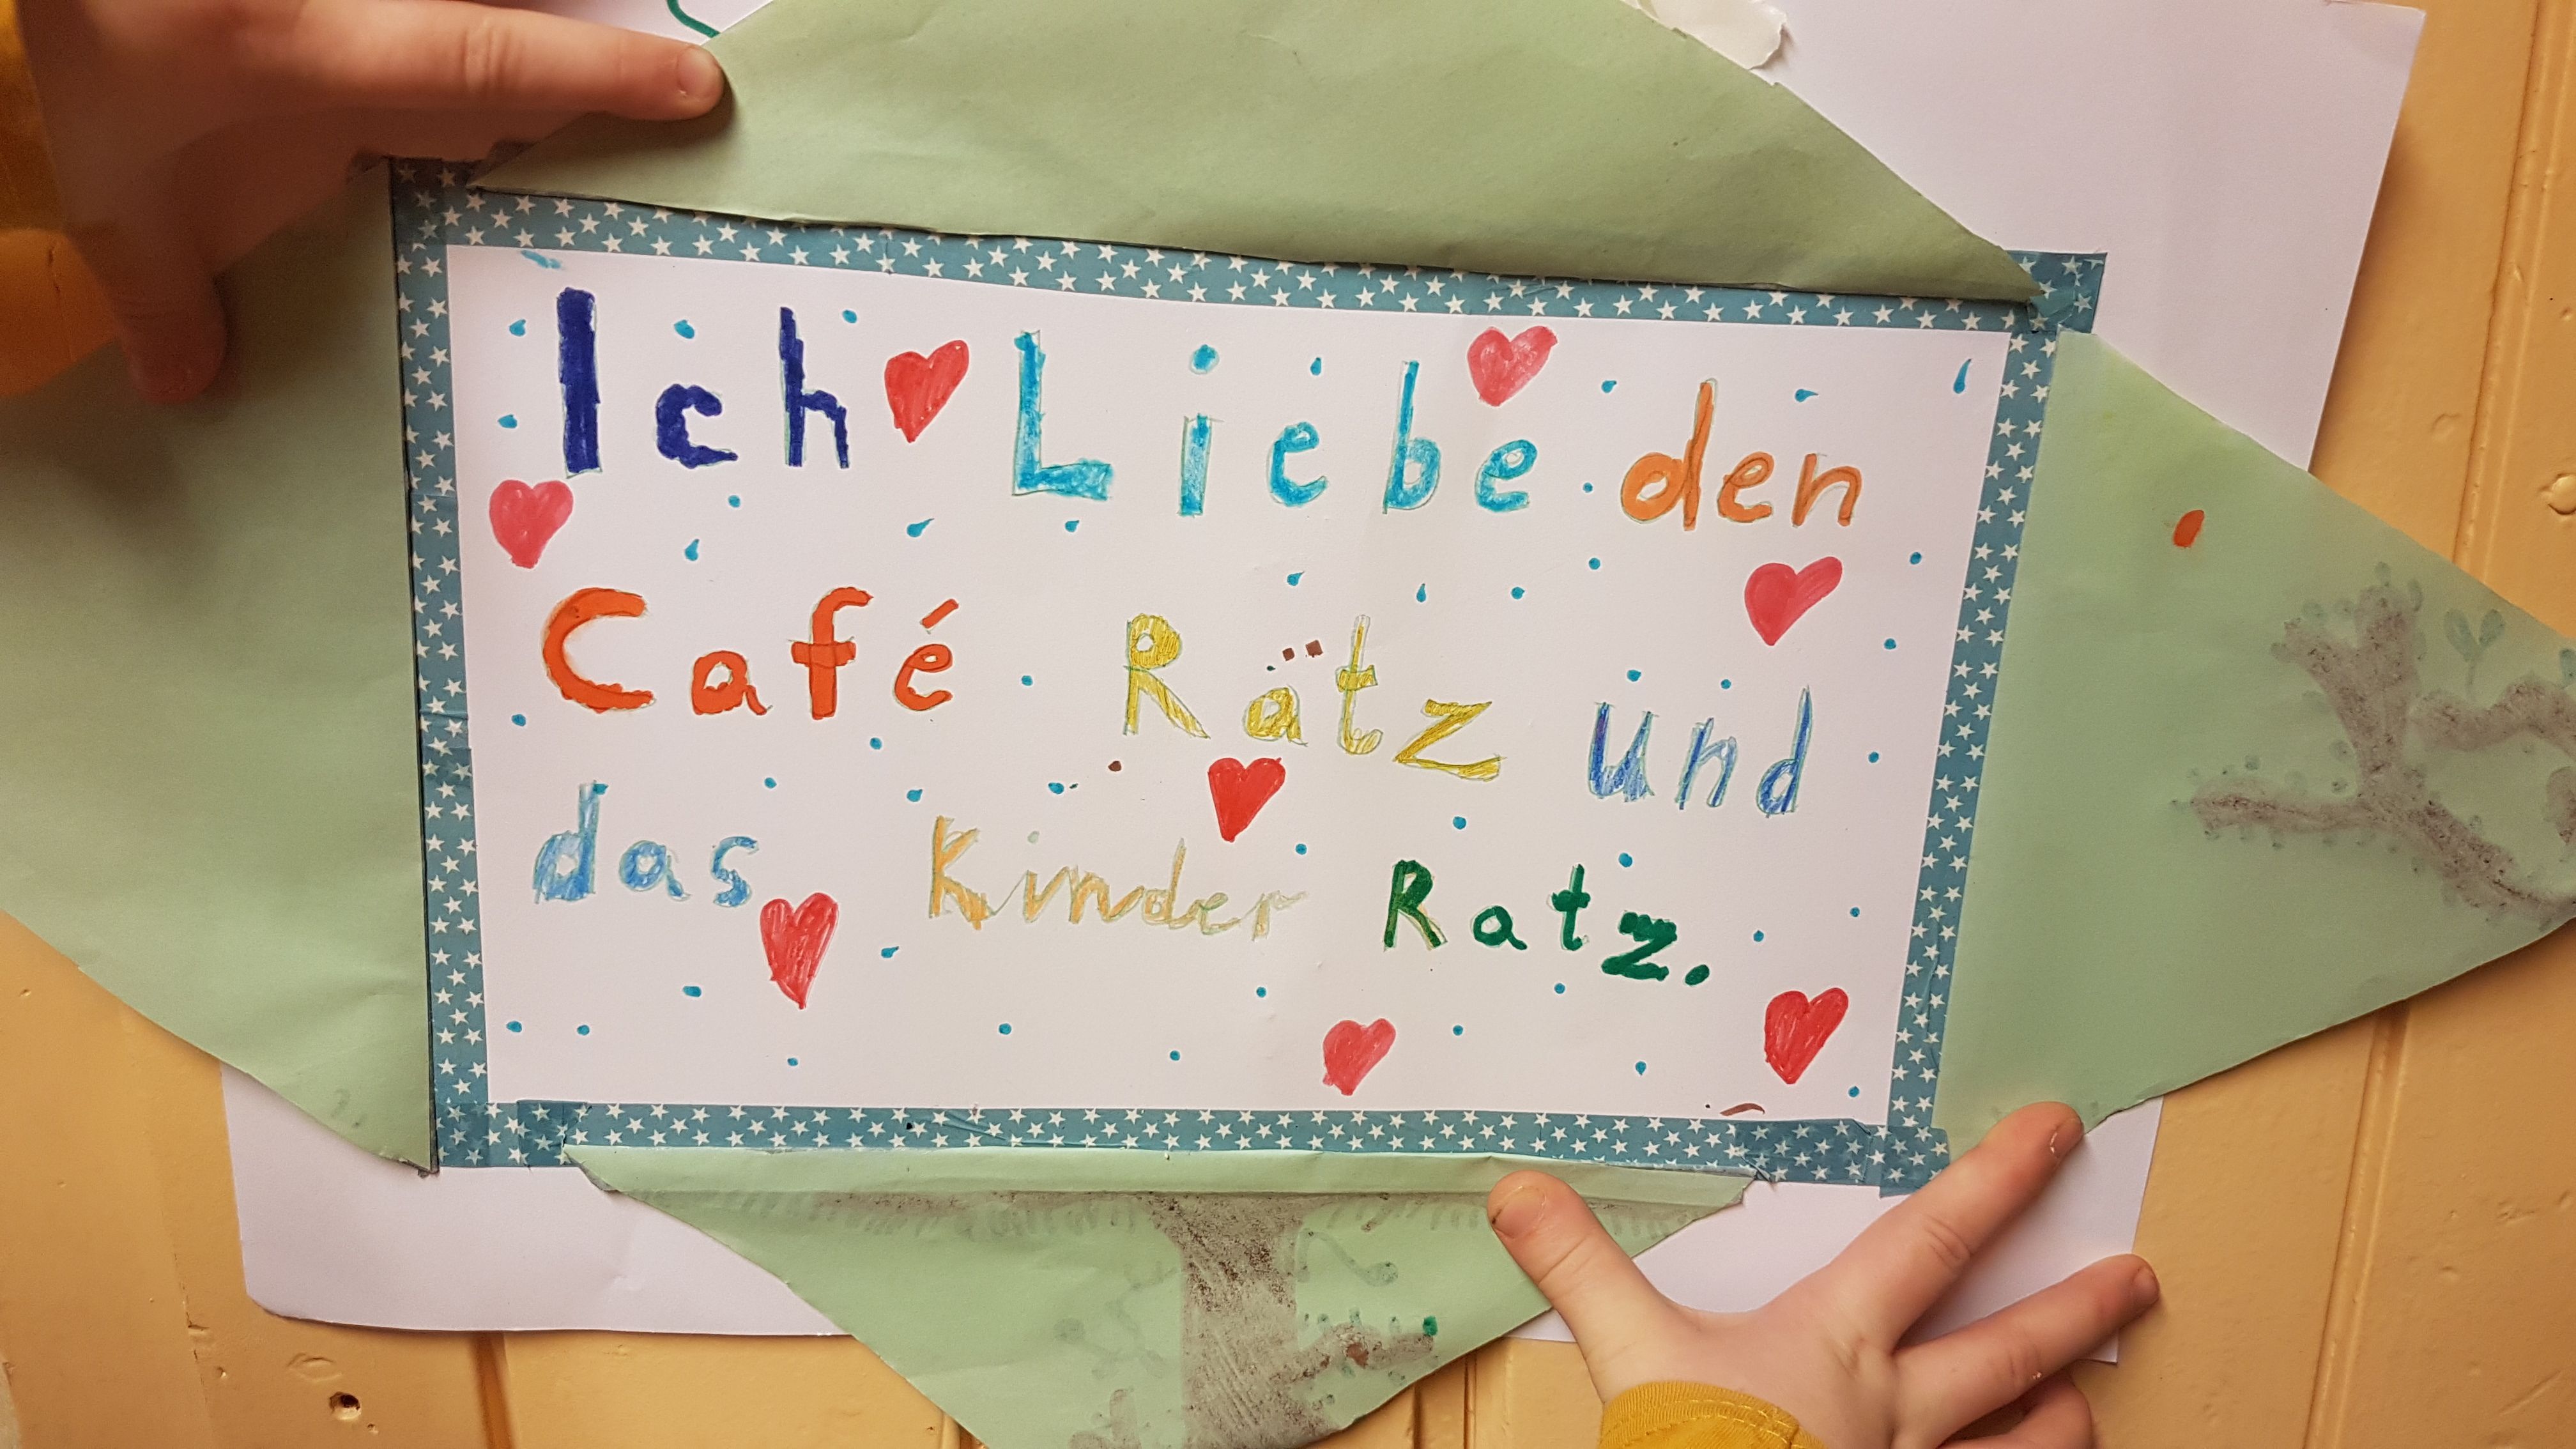 Ich Liebe den
Café Rätz und
das Kinder Ratz.